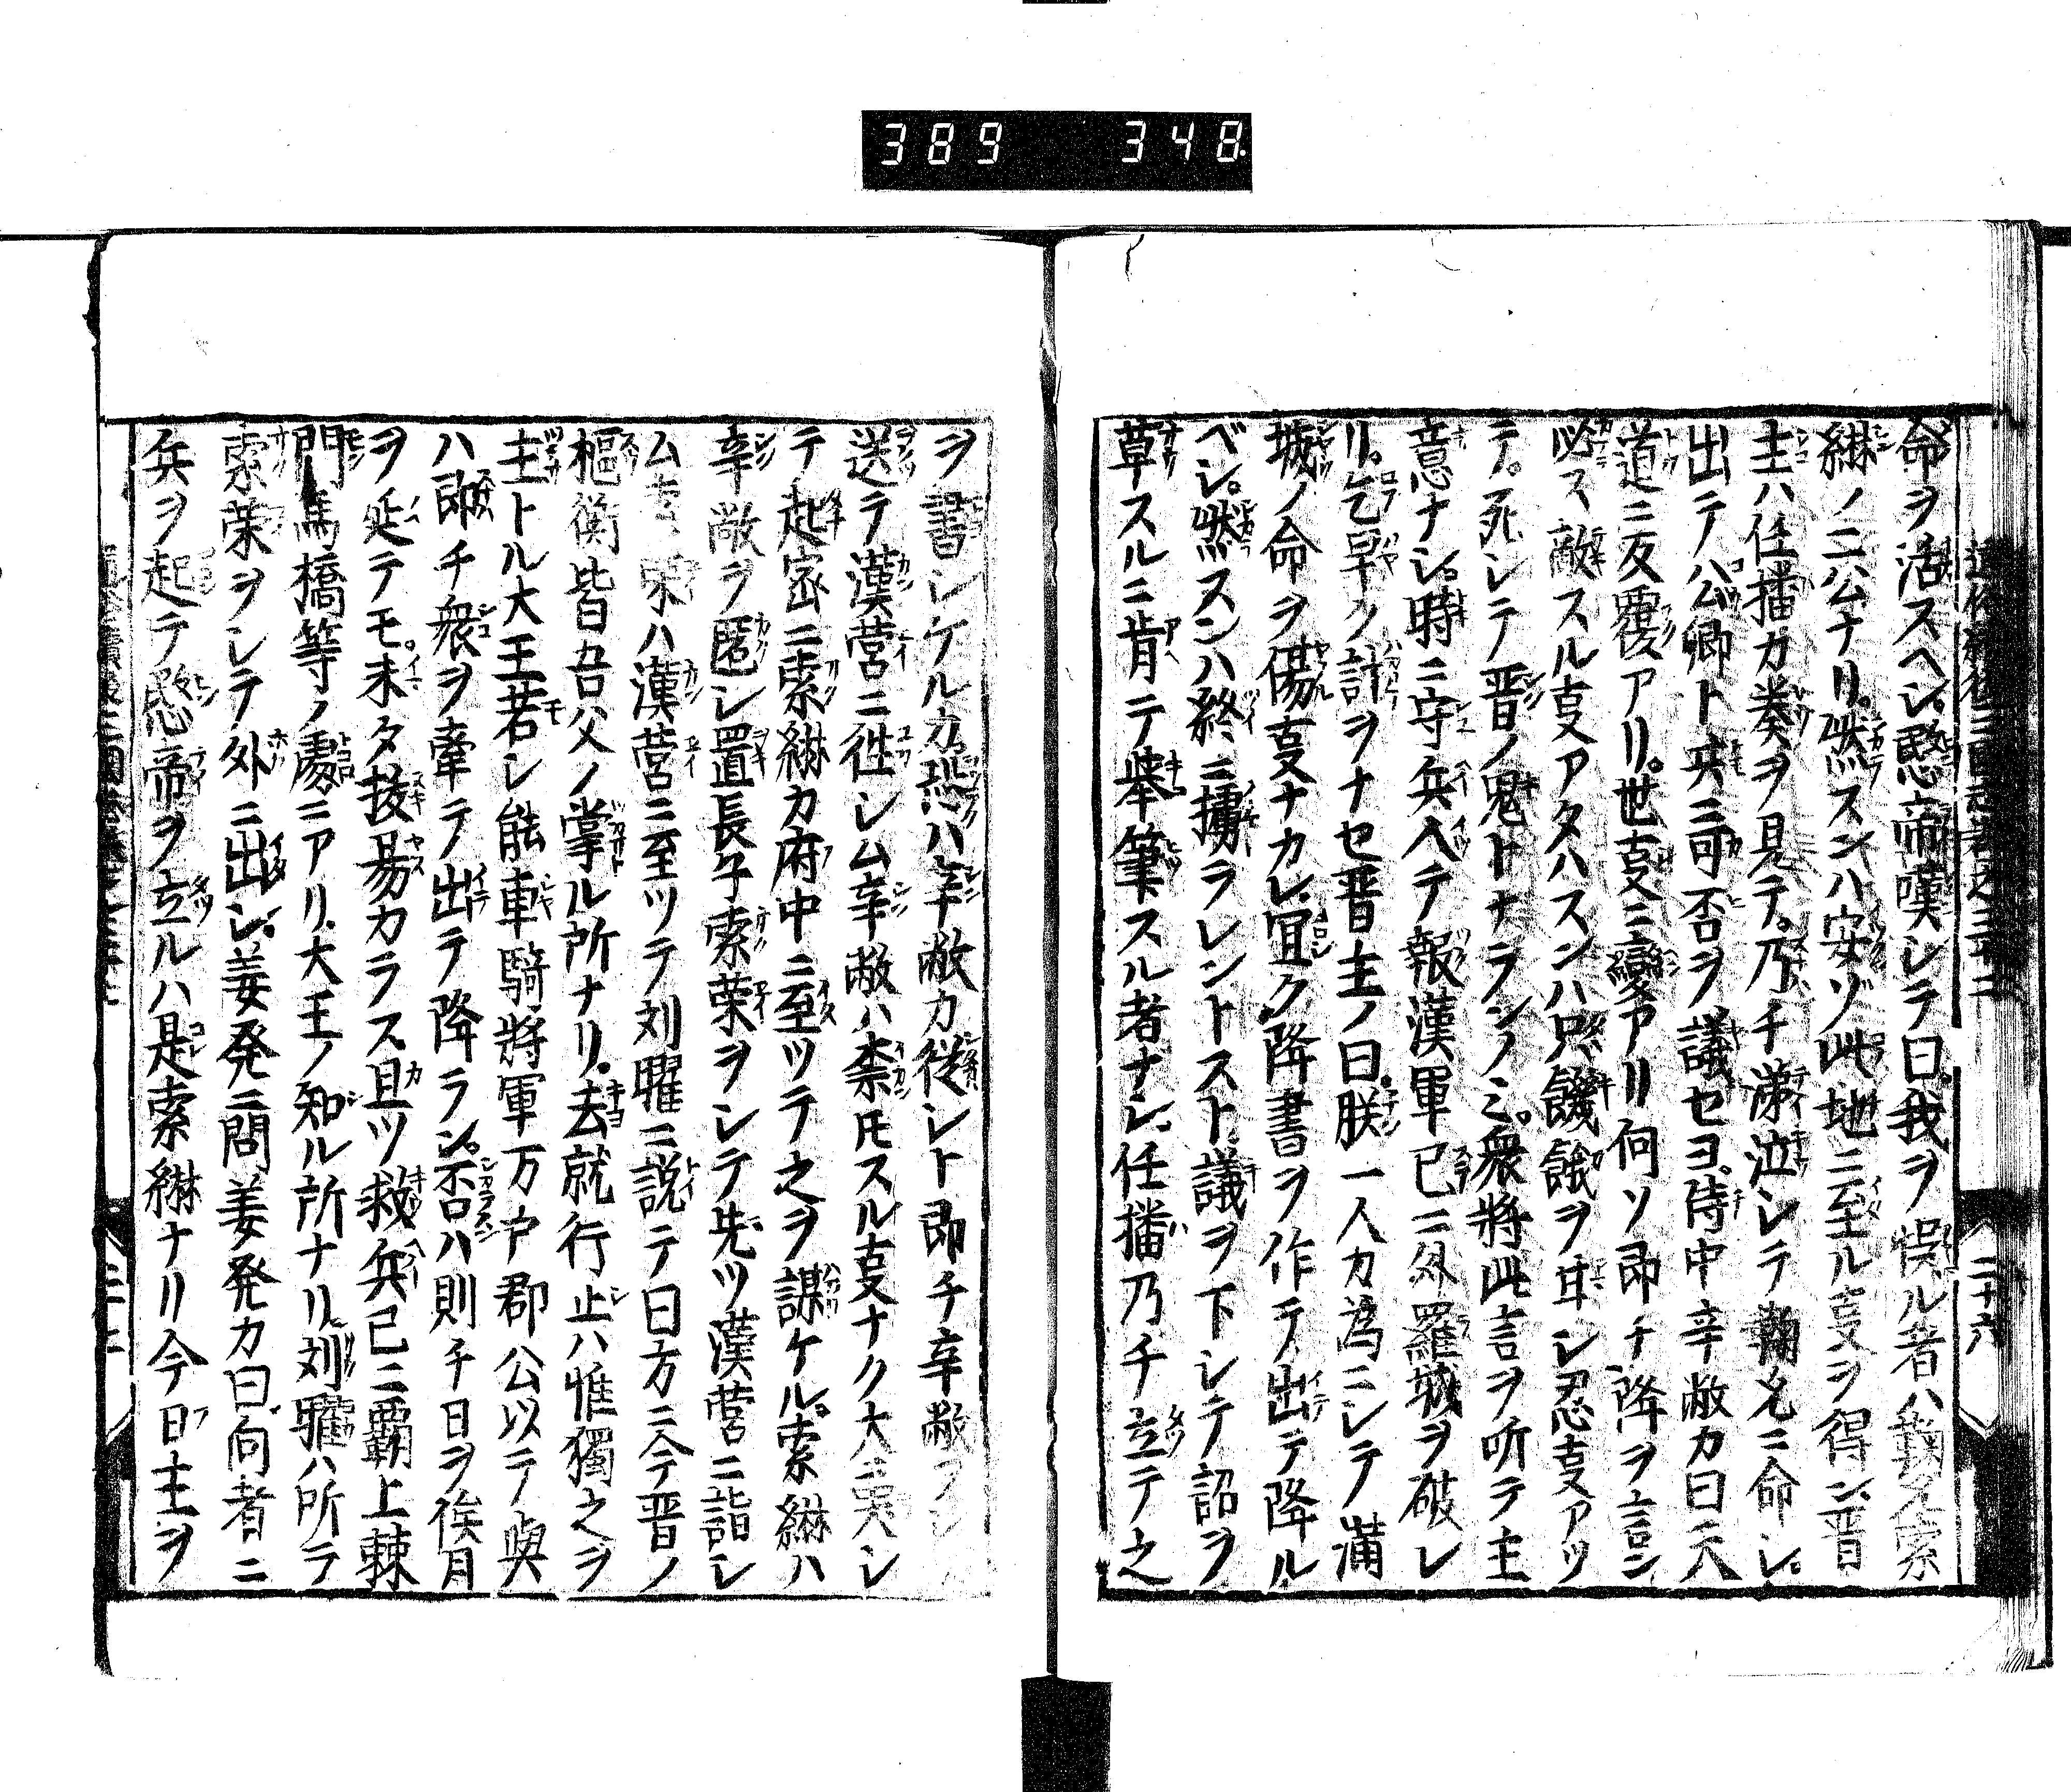 389 348
二十六
命ヲ活スヘシ愍帝嘆シテ曰我ヲ悞ル者ハ麹允索
綝ノ二公ナリ。然スンハ安ゾ此地ニ至ル㕝ヲ得ン、晋
主ハ任播カ奏ヲ見テ。乃チ涕泣シテ麹允ニ命シ。
出テハ公卿ト共ニ可否ヲ議セヨ。侍中辛敝カ曰天
道ニ反覆アリ。世㕝ニ變アリ何ソ即チ降ヲ言ン
必ス敵スル㕝アタハスンハ只饑餓ヲ甘シ忍㕝アツ
テ。死シテ晋ノ鬼トナランノミ。衆將此言ヲ听テ主
意ナシ。時ニ守兵入テ報漢軍已ニ外羅城ヲ破レ
リ。乞早ク計ヲナセ晋主ノ曰。朕一人カ為ニシテ滿
城ノ命ヲ傷㕝ナカレ、宜ク降書ヲ作テ出テ降ル
ベシ。然スンハ終ニ擄ラレントスト議ヲ下シテ詔ヲ
草スルニ肯テ挙筆スル者ナシ、任播乃チ立テ之
ヲ書シケルカ恐ハ辛敝カ従シト即チ辛敝ヲシ
送テ漢営ニ徃シム辛敝ハ柰モスル㕝ナク大哭シ
テ起密ニ索綝カ府中ニ至ツテ之ヲ謀ケル。索綝ハ
辛敝ヲ匿シ置長子索荣ヲシテ先ツ漢営ニ詣シ
ム索荣ハ漢営ニ至ツテ刘曜ニ説テ曰方ニ今晋ノ
樞衡皆吾父ノ掌ル所ナリ。去就行止ハ惟獨之ヲ
主トル大王若シ能車騎將軍万戸郡公以テ與
ハ即チ衆ヲ牽テ出テ降ラン。否ハ則チ日ヲ俟月
ヲ延テモ。未タ拔易カラス且ツ救兵已ニ覇上棘
門馮橋等ノ處ニアリ、大王ノ知ル所ナリ、刘曜ハ所ラ
索荣ヲシテ外ニ出シ。姜発ニ問姜発カ曰向者ニ
兵ヲ起テ愍帝ヲ立ルハ是索綝ナリ今日主ヲ